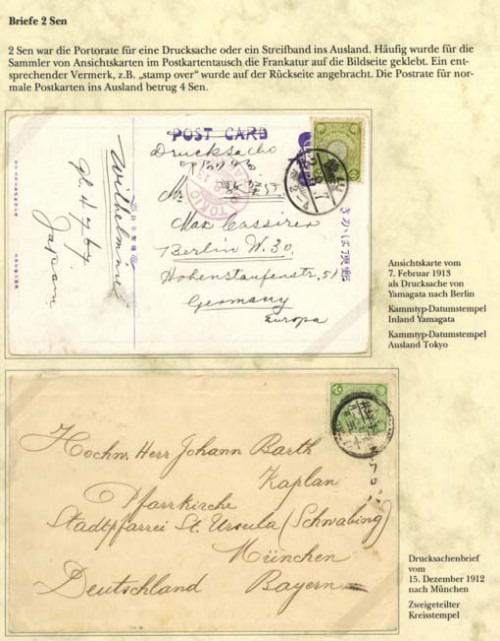 Briefe 2 Sen
2 Sen war die Portorate für eine Drucksache oder ein Streifband ins Ausland. Häufig wurde für die
Sammler von Ansichtskarten im Postkartentausch die Frankatur auf die Bildseite geklebt. Ein ent-
sprechender Vermerk, z.B. „stamp over“ wurde auf der Rückseite angebracht. Die Postrate für nor-
male Postkarten ins Ausland betrug 4 Sen.
POST CARD
Drucksache
TOKIO
Max Cassirer
Berlin W. 30.
Hohenstaufenstr. 51
Germany
Europa
Wilhelmine
Ansichtskarte vom
7. Februar 1913
als Drucksache von
Yamagata nach Berlin
Kammtyp-Datumstempel
Inland Yamagata
Kammtyp-Datumstempel
Ausland Tokyo
Hochw. Herr Johann Barth
Kaplan
Pfarrkirche
Stadtpfarrei St. Ursula (Schwabing)
München
Deutschland Bayern
Drucksachenbrief
vom
15. Dezember 1912
nach München
Zweigeteilter
Kreisstempel